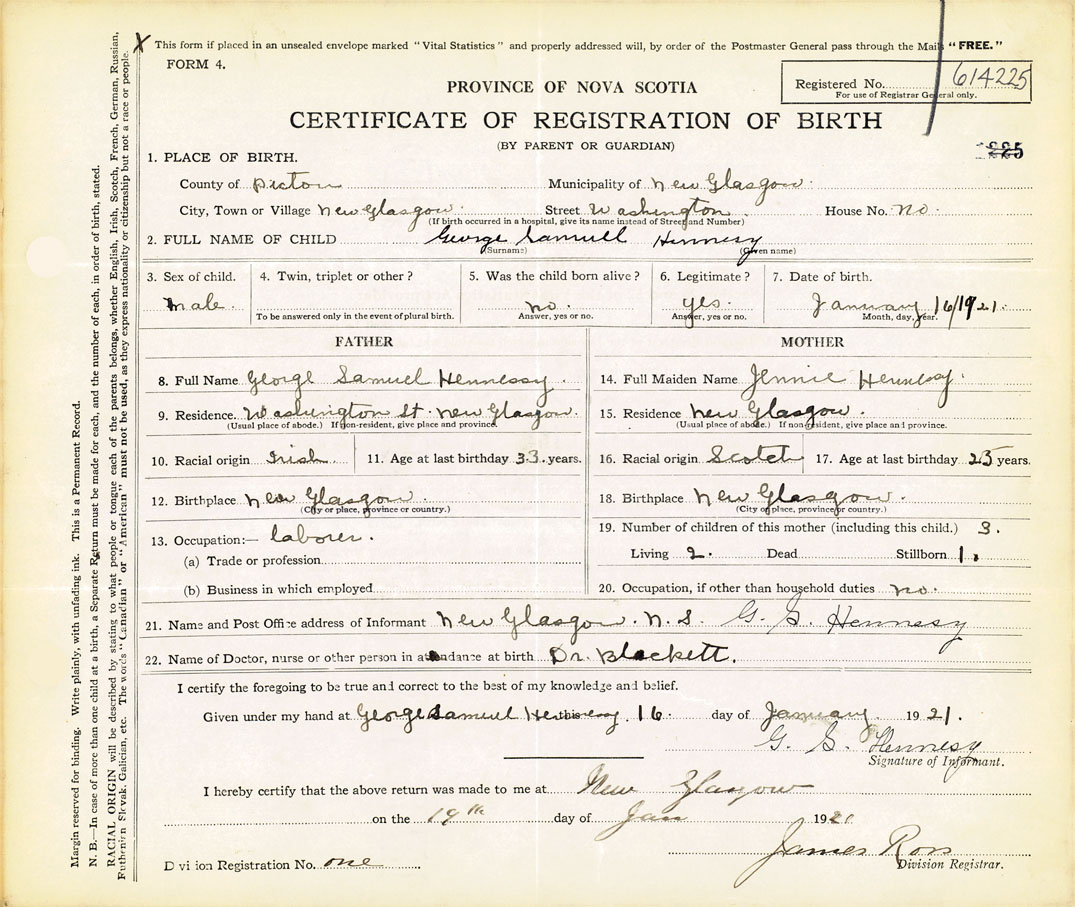 This form if placed in an unsealed envelope marked "Vital Statistics" and properly addressed will, by order of the Postmaster General pass through the Mail "FREE."
FORM 4.
Registered No. 614225
For use of Registrar General only.
PROVINCE OF NOVA SCOTIA
CERTIFICATE OF REGISTRATION OF BIRTH
(BY PARENT OR GUARDIAN)
1. PLACE OF BIRTH.
County of Picton Municipality of New Glasgow
City, Town or Village New Glasgow Street Washington House No. no
(If birth occurred in a hospital, give its name instead of Street and Number)
2. FULL NAME OF CHILD George Samuell Hennesy
(Surname) (Given name)
3. Sex of child. 4. Twin, triplet or other? 5. Was the child born alive? 6. Legitimate? 7. Date of birth.
male. no. yes. January 16/1921.
To be answered only in the event of plural birth. Answer, yes or no. Answer, yes or no. Month, day, year.
FATHER
8. Full Name George Samuel Hennessy.
9. Residence. Washington St. New Glasgow.
(Usual place of abode.) If non-resident, give place and province
10. Racial origin Irish 11. Age at last birthday 33. years.
12. Birthplace New Glasgow.
(City or place, province or country.)
13. Occupation:— laborer.
(a) Trade or profession
(b) Business in which employed
MOTHER
14. Full Maiden Name Jennie Hennessy.
15. Residence New Glasgow.
(Usual place of abode.) If non-resident, give place and province.
16. Racial origin Scotch 17. Age at last birthday 25 years.
18. Birthplace New Glasgow.
(City or place, province or country.)
19. Number of children of this mother (including this child.) 3.
Living 2. Dead Stillborn 1.
20. Occupation, if other than household duties no.
21. Name and Post Office address of Informant New Glasgow. N.S. G. S. Hennesy
22. Name of Doctor, nurse or other person in attendance at birth Dr. Blackett.
I certify the foregoing to be true and correct to the best of my knowledge and belief.
Given under my hand at George Samuel Hennessy this 16. day of January. 1921.
G. S. Hennesy
Signature of Informant.
I hereby certify that the above return was made to me at New Glasgow
on the 19th day of Jan 1921
James Ross
Division Registrar.
Division Registration No. one
Margin reserved for binding. Write plainly, with unfading ink. This is a Permanent Record.
N. B.—In case of more than one child at a birth, a Separate Return must be made for each, and the number of each, in order of birth, stated.
RACIAL ORIGIN will be described by stating to what people or tongue each of the parents belongs, whether English, Irish, Scotch, French, German, Russian,
Ruthenian, Slovak, Galician, etc. The words "Canadian" or "American" must not be used, as they express nationality or citizenship but not a race or people.